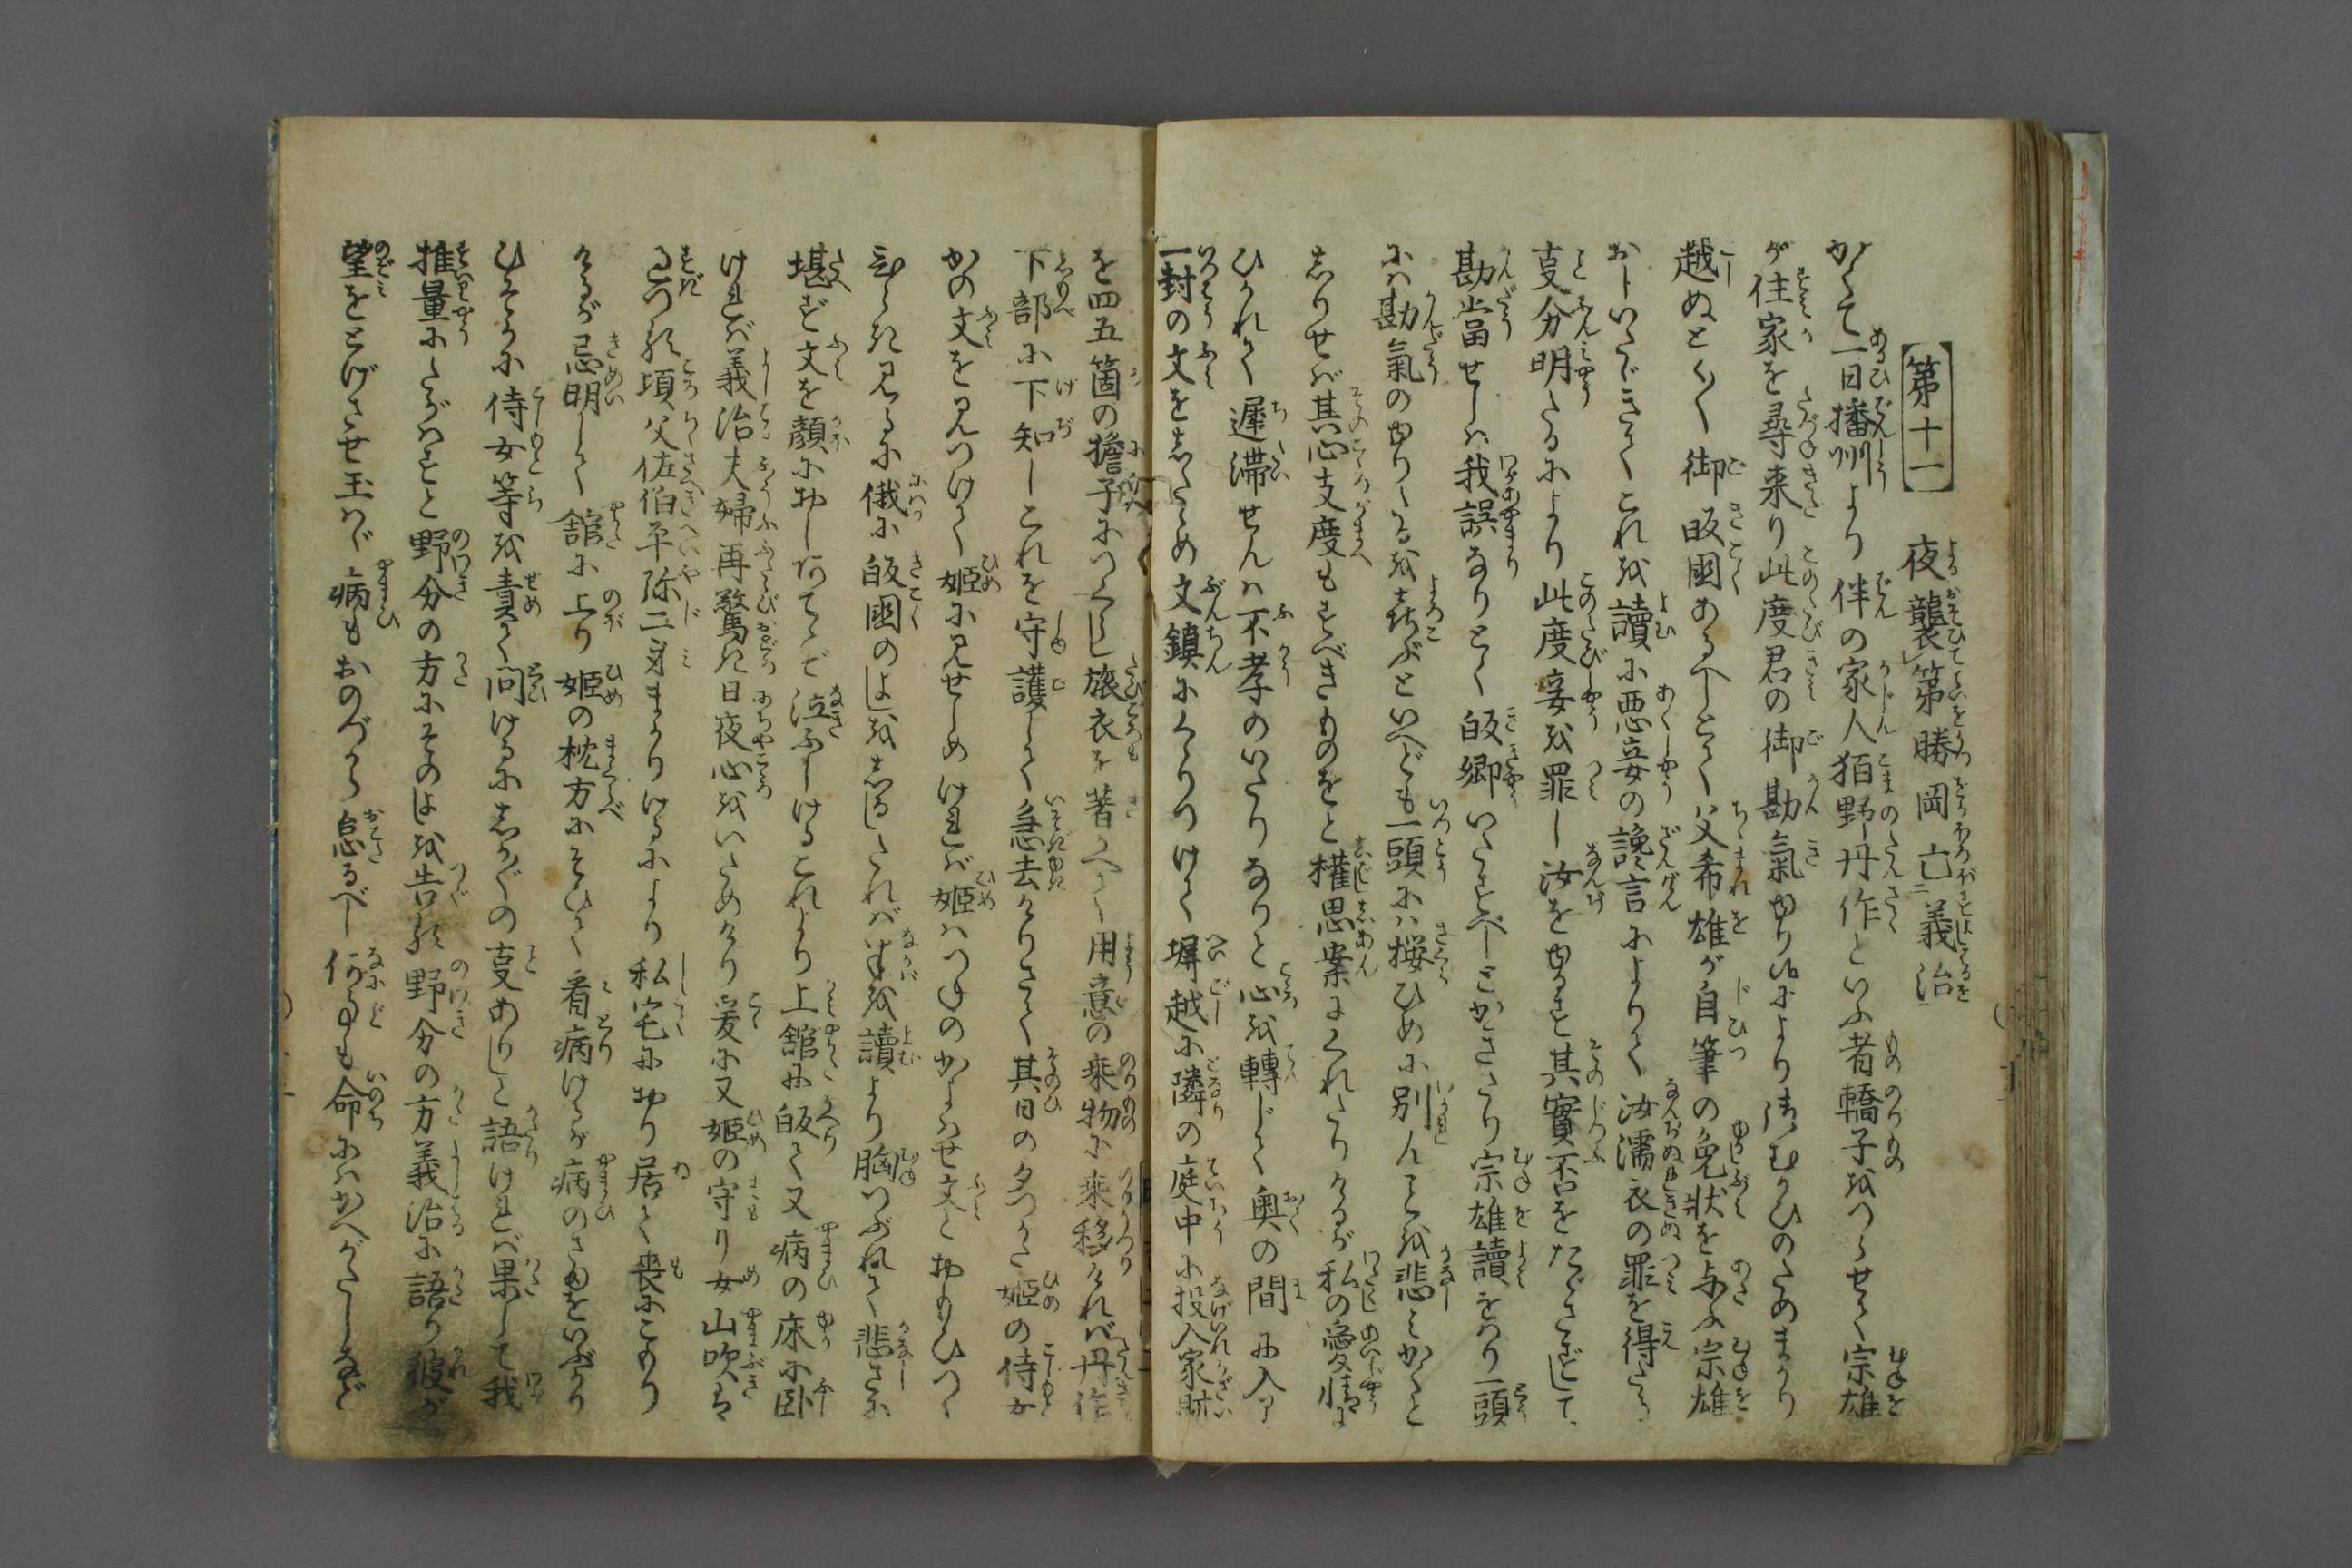 【第十一】 夜襲第勝岡亡義治
かくて一日播州より伴の家人狛野丹作といふ者轎子をつらせて宗雄
が住家を尋来り此度君の御勘氣ゆり給ふにより御むかひのためまかり
越ぬとく〳〵御皈国あるべしとて父希雄が自筆の免状を与ふ宗雄
おしいたゞきてこれを讀に悪妾の讒言によりて汝濡衣の罪を得たる
㕝分明たるにより此度妾を罪し汝をゆるす其實否をたゞさずして
勘當せしは我誤なりとく皈郷いたすべしとかきたり宗雄讀をはり一頭
には勘氣のゆりたるを喜ぶといへども一頭には桜ひめに別んことを悲みかくと
しりせば其心支度もすべきものをと權思案にくれたりけるが私の愛情に
ひかれて遲滞せんは不孝のいたりなりと心を轉じて奥の間に入り
一封の文をしたゝめ文鎮にくゝりつけて塀越に隣の庭中に投入家財
を四五箇の擔子につくらし旅衣を著かへて用意の乗物に乗移ければ丹作
下部に下知しこれを守護して急去けりさて其日の夕つかた姫の侍女
かの文を見つけて姫に見せしめければ姫はつねのかよはせ文とおもひつゝ
ひらき見るに俄に皈國のよしをしるしたればなかばを讀より胸つぶれて悲さに
堪ず文を顔におしあてゝぞ泣ふしけるこれより上舘に皈て又病の床に臥
ければ義治夫婦再驚き日夜心をいためけり爰に又姫の守り女山吹は
過つる頃父佐伯平弥二身まかりけるにより私宅にをり居て喪にこもり
けるが忌明して舘に上り姫の枕方にそひて看病けるが病のさまをいぶかり
ひそかに侍女等を責て問けるにしか〴〵の㕝ありしと語ければ果して我
推量にたがはずと野分の方にそのよしを告る野分の方義治に語り彼が
望をとげさせ玉はゞ病もおのづから怠るべし何事も命にはかへがたしなど